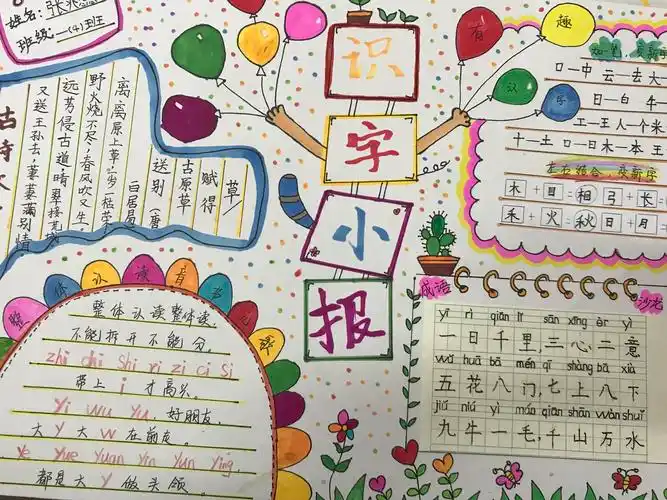 姓名:张兆
班级:一(4)班
识
字
小
报
有趣
汉字
加一笔,变新字
口—中 云—去 大
日—白 牛
工—王 人—个 米
十—土 口—日 木—本 王
左右结合,变新字
木+目=相 弓+长=
禾+火=秋 日+月=
草
赋得
古原草
送别(唐)
白居易
离离原上草,一岁一枯荣
野火烧不尽,春风吹又生
远芳侵古道,晴翠接
又送王孙去,萋萋满别情
古诗
整体认读音节儿歌
整体认读整体读,
不能拆开不能分。
zhi chi shi ri zi ci si
带上 i 才高兴。
yi wu yu 好朋友,
大 y 大 w 在前友。
ye yue yuan yin yun ying,
都是大 y 做头领。
成语
沙龙
yī rì qiān lǐ sān xīng èr yì
一日千里,三心二意
wǔ huā bā mén qī shàng bā xià
五花八门,七上八下
jiǔ niú yì máo qiān shān wàn shuǐ
九牛一毛,千山万水